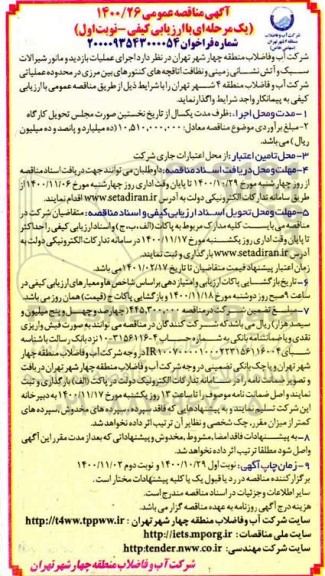 آگهی مناقصه عمومی ۱۴۰۰/۲۶
(یک مرحله‌ای با ارزیابی کیفی - نوبت اول)
شماره فراخوان ۲۰۰۰۰۹۳۵۴۳۰۰۰۰۵۴
شرکت آب و فاضلاب
منطقه ۴ شهر تهران
(سهامی خاص)
شرکت آب وفاضلاب منطقه چهار شهر تهران در نظر دارد اجرای عملیات بازدید و مانور شیرآلات
سبک و آتش نشانی زمینی و نظافت اتاقچه های کنتورهای بین مرزی در محدوده عملیاتی
شرکت آب و فاضلاب منطقه ۴ شهر تهران را با شرایط ذیل از طریق مناقصه عمومی با ارزیابی
کیفی به پیمانکار واجد شرایط واگذار نماید.
۱- مدت و محل اجرا: ظرف مدت یکسال از تاریخ نخستین صورت مجلس تحویل کارگاه
۲- مبلغ برآوردی موضوع مناقصه معادل: ۱۰,۵۱۰,۰۰۰,۰۰۰ (ده میلیارد و پانصد و ده میلیون
ریال) می باشد.
۳- محل تامین اعتبار: از محل اعتبارات جاری شرکت
۴- مهلت و محل دریافت اسناد مناقصه: داوطلبان می توانند جهت دریافت اسناد مناقصه
از روز چهارشنبه مورخ ۱۴۰۰/۱۰/۲۹ تا پایان وقت اداری روز چهارشنبه مورخ ۱۴۰۰/۱۱/۰۶ از
طریق سامانه تدارکات الکترونیکی دولت به آدرس www.setadiran.ir اقدام نمایند.
۵- مهلت و محل تحویل اسناد ارزیابی کیفی و اسناد مناقصه: متقاضیان شرکت در
مناقصه می بایست کلیه مدارک مربوط به پاکات (الف، ب، ج) و اسناد ارزیابی کیفی را حداکثر
تا پایان وقت اداری روز یکشنبه مورخ ۱۴۰۰/۱۱/۱۷ در سامانه تدارکات الکترونیکی دولت به
آدرس www.setadiran.ir بارگذاری و ثبت نمایند.
زمان اعتبار پیشنهاد قیمت متقاضیان تا تاریخ ۱۴۰۱/۰۲/۱۷ می باشد.
۶- تاریخ بازگشایی پاکات ارزیابی و امتیاز دهی بر اساس شاخص ها و معیارهای ارزیابی کیفی در
ساعت ۹ صبح روز دوشنبه مورخ ۱۴۰۰/۱۱/۱۸ و بازگشایی پاکات ج (قیمت) همان روز می باشد.
۷- مبلغ تضمین شرکت در مناقصه
سیصد هزار) ریال می باشد که شرکت کنندگان در مناقصه می توانند به صورت فیش واریزی
نقدی و یا ضمانتنامه بانکی به شماره حساب
شرکت تسلیم نمایند و به پیشنهادهای که فاقد سپرده، سپرده های مخدوش، سپرده های
کمتر از میزان مقرر، چک شخصی و نظایر آن ترتیب اثر داده نخواهد شد.
۸- به پیشنهادات فاقد امضا، مشروط، مخدوش و پیشنهاداتی که بعد از مدت مقرر این آگهی
واصل شود مطلقا ترتیب اثر داده نخواهد شد.
۹- زمان چاپ آگهی: نوبت اول ۱۴۰۰/۱۰/۲۹ و نوبت دوم ۱۴۰۰/۱۱/۰۲
برگزار کننده مناقصه در رد یا قبول یک یا کلیه پیشنهادات مختار است.
سایر اطلاعات و جزئیات در اسناد مناقصه مندرج است.
هزینه درج آگهی روزنامه به عهده مناقصه گزار می باشد.
سایت شرکت آب و فاضلاب منطقه چهار شهر تهران: http://t4ww.tppww.ir
سایت ملی مناقصات: http://iets.mporg.ir
سایت شرکت مهندسی: http:tender.nww.co.ir
شرکت آب و فاضلاب منطقه چهار شهر تهران